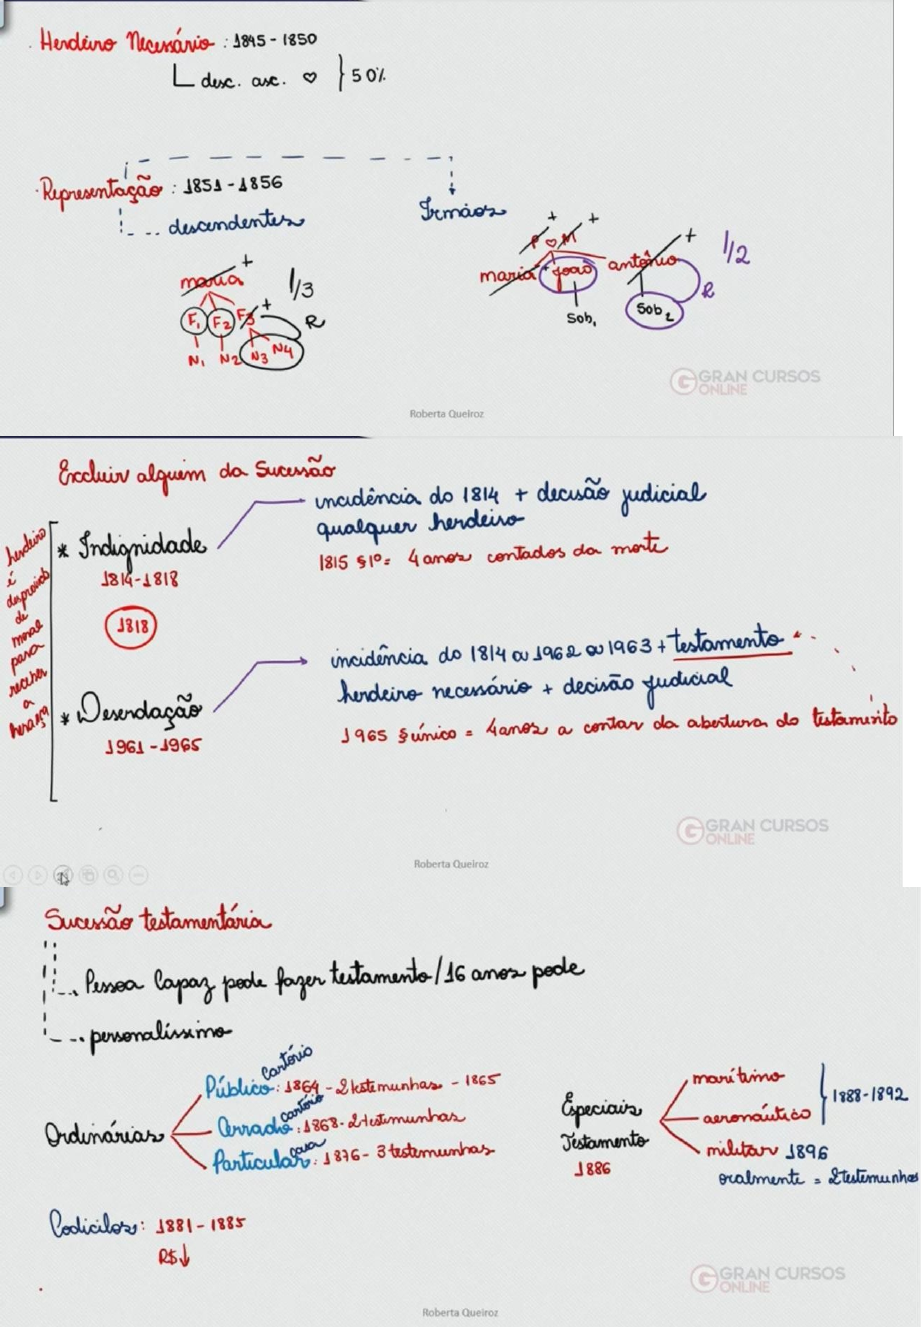 Herdeiro Necessário : 1845 - 1850
desc. asc. ♡ } 50%
Representação : 1851 - 1856
descendentes
Irmãos
maria +
1/3
F1 F2 F3 +
R
N1 N2 N3 N4
+ +
P ♡ M
maria + João antônio +
1/2
R
Sob1 Sob2
GRAN CURSOS
ONLINE
Roberta Queiroz
Excluir alguém da Sucessão
herdeiro
é
desprovido
de
moral
para
receber
a
herança
* Indignidade
1814-1818
1818
incidência do 1814 + decisão judicial
qualquer herdeiro
1815 §1º = 4 anos contados da morte
* Deserdação
1961 - 1965
incidência do 1814 ou 1962 ou 1963 + testamento
herdeiro necessário + decisão judicial
1965 §único = 4 anos a contar da abertura do testamento
GRAN CURSOS
ONLINE
Roberta Queiroz
Sucessão testamentária
Pessoa Capaz pode fazer testamento / 16 anos pode
personalíssimo
Ordinárias
Cartório
Público : 1864 - 2 testemunhas - 1865
cartório
Cerrado : 1868 - 2 testemunhas
casa
Particular : 1876 - 3 testemunhas
Especiais
Testamento
1886
marítimo
aeronáutico
} 1888-1892
militar 1896
oralmente = 2 testemunhas
Codicilos : 1881 - 1885
R$ ↓
GRAN CURSOS
ONLINE
Roberta Queiroz